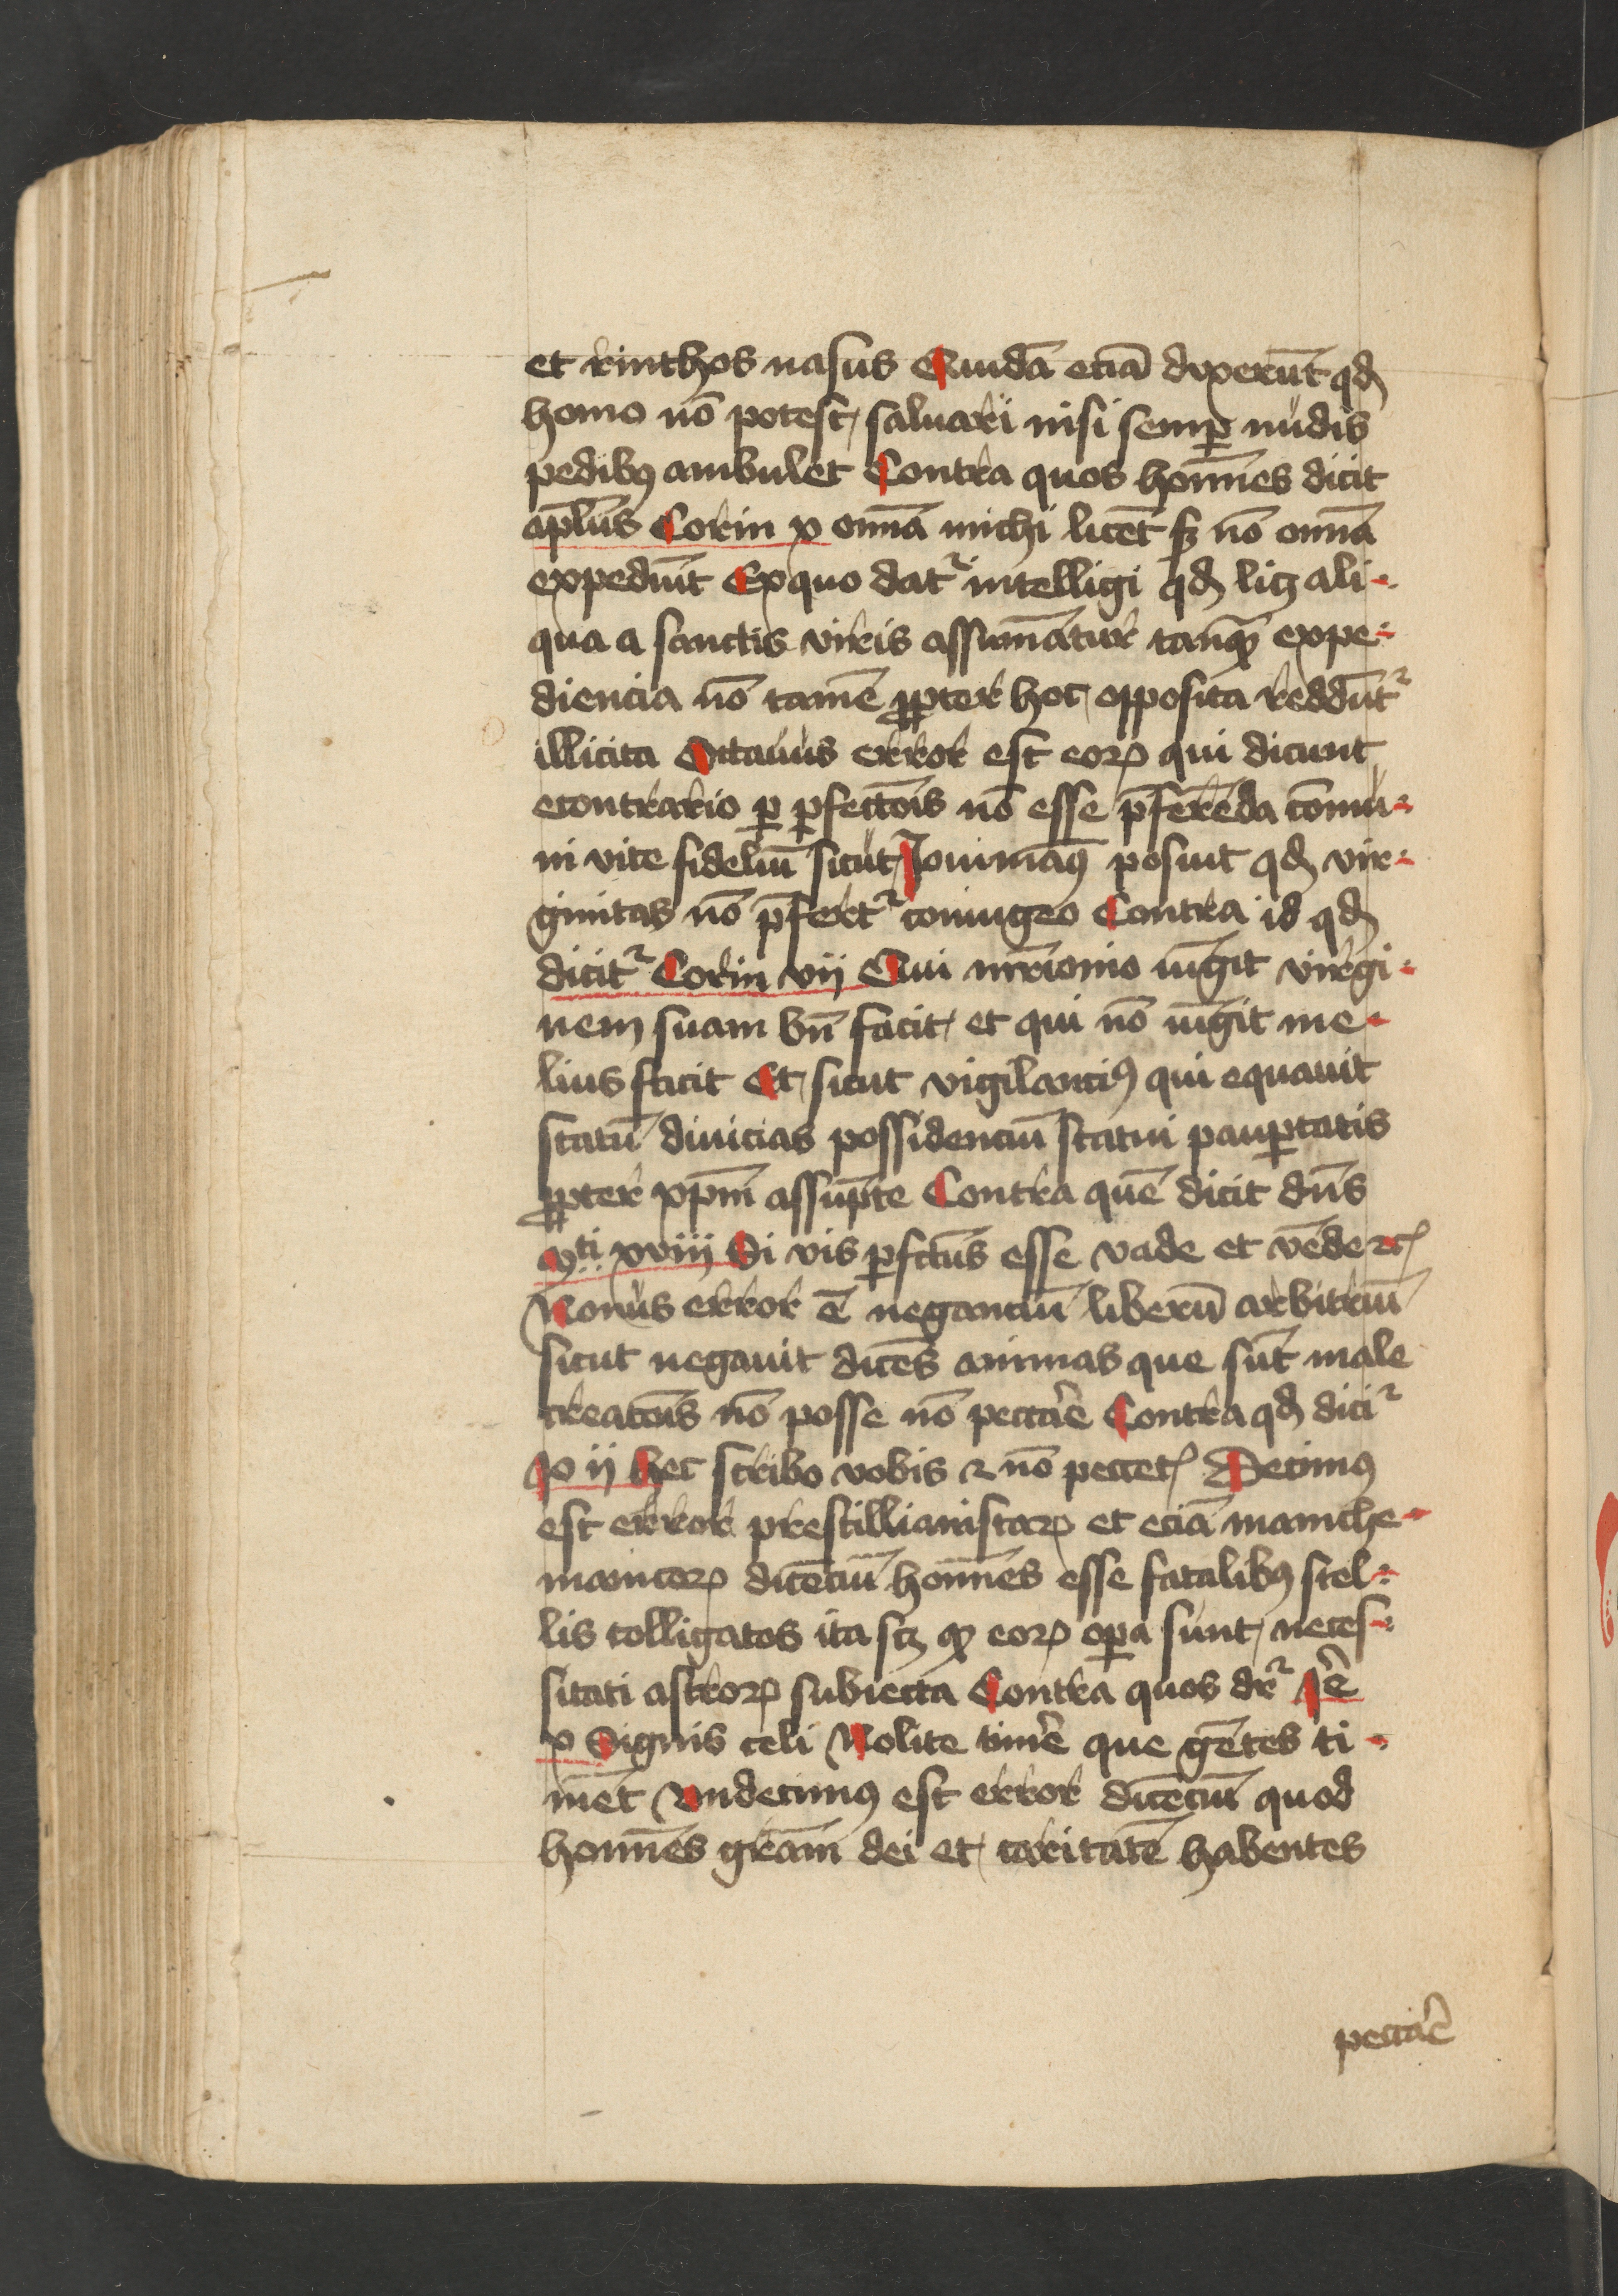 et rinthos nasus Quidā eciā dixerūt qď
homo nō potest saluari nisi semꝑ nudis
pedibꝰ ambulet Contra quos hom̄ines dicit
apl̄us Corin x om̄ia michi licēt sꝫ nō om̄ia
expediūt Ex quo datʳ intelligi qď licꝫ ali-
qua a sanctis viris assumātur tanqꝫ expe-
diencia nō tamē ꝓpter hoc opposita reddūtʳ
illicita Octauus error est eoꝝ qui dicunt
econtrario ꝑ ꝑfectōis nō esse p̄ferēda cōmu-
ni vite fideliū sicut Iouiniāꝰ posuit qď vir-
ginitas nō p̄fertʳ coniugeo Contra id qď
dicitʳ Corin vij Qui mr̄ionio iūgit virgi-
nem suam bn̄ facit et qui nō iūgit me-
lius facit Et sicut vigilanciꝰ qui equauit
statū diuicias possidenciū statui pauꝑtatis
ꝓpter xp̄m assūpte Contra quē dicit dn̄s
Mᵗⁱ xviij Si vis ꝑfctūs esse vade et vēde ⁊c̄
Nonus error ē neganciū liberū arbitriū
sicut negauit dicēs animas que sūt male
creatōis nō posse nō peccare Contra qď diciʳ
Io ij hec scribo vobis ⁊ nō peccetꝭ Decimꝰ
est error prescillianistaꝝ et eciā maniche-
maniceoꝝ dicēciū hom̄ines esse fatalibꝰ stel-
lis colligatos ita scꝫ qꝫ eoꝝ oꝑa sunt neces-
sitati astroꝝ subiecta Contra quos dr̄ʳ Iē
x Signis celi Nolite timēe que gētes ti-
mēt Vndecimꝰ est error dicēciū quod
hom̄ines gr̄am dei et caritatē habentes
peccāe